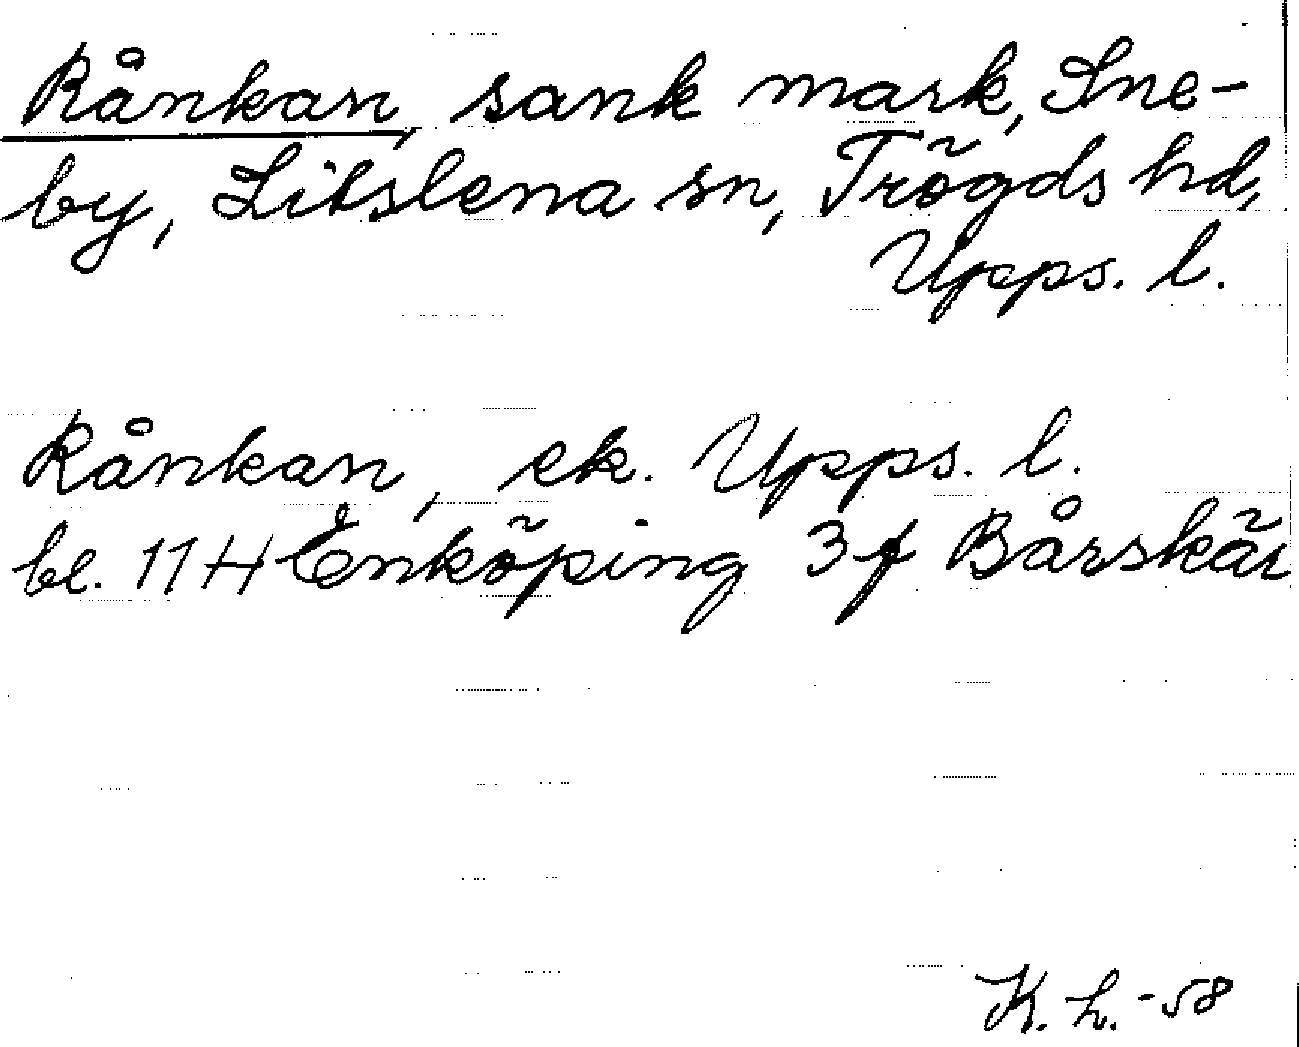 Rånkan, sank mark, Sne-
by, Litslena sn, Trögds hd,
Upps. l.
Rånkan, ek. Upps. l.
bl. 11 H Enköping 3 f Bårskär
K. h. -58